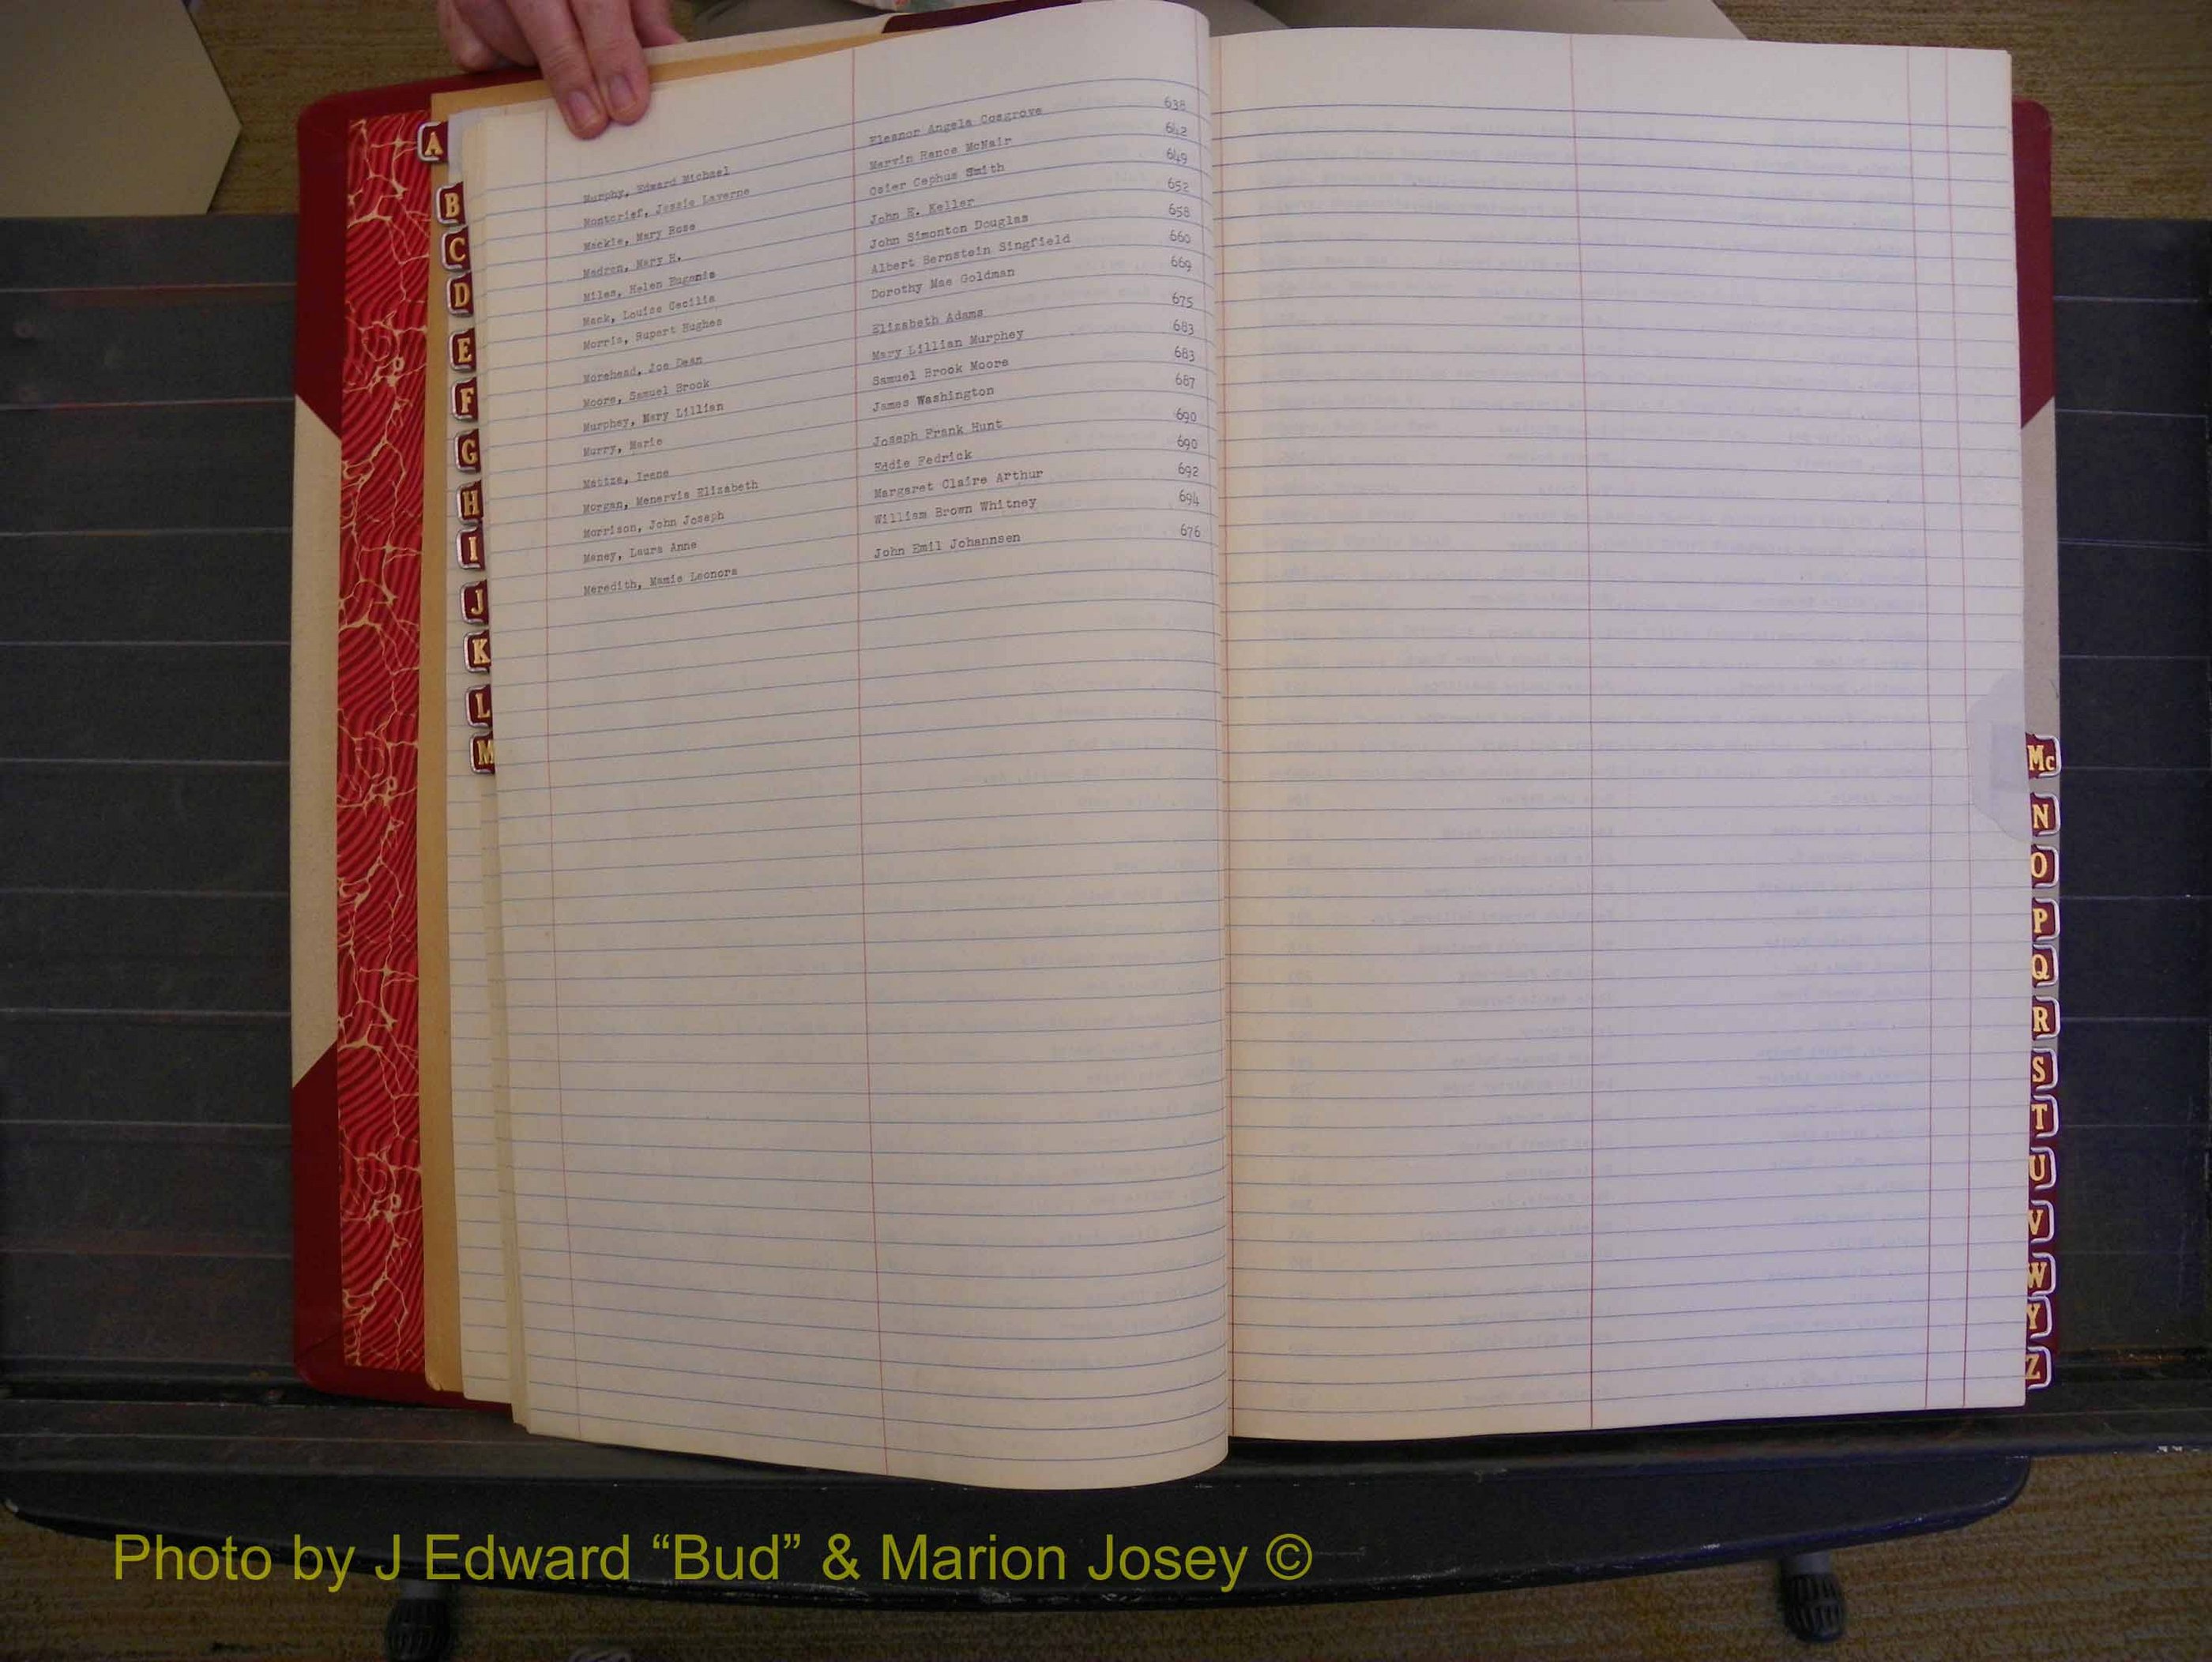 Murphy, Edward Michael Eleanor Angela Cosgrove 638
Montcrief, Jessie Laverne Marvin Hance McNair 642
Mackie, Mary Rose Osier Cephus Smith 649
Madren, Mary H. John E. Keller 652
Miles, Helen Eugenia John Simonton Douglas 658
Mack, Louise Cecilia Albert Bernstein Singfield 660
Morris, Rupert Hughes Dorothy Mae Goldman 669
Morehead, Joe Dean Elizabeth Adams 675
Moore, Samuel Brook Mary Lillian Murphey 683
Murphey, Mary Lillian Samuel Brook Moore 683
Murry, Marie James Washington 687
Matiza, Irene Joseph Frank Hunt 690
Morgan, Menervia Elizabeth Eddie Fedrick 690
Morrison, John Joseph Margaret Claire Arthur 692
Maney, Laura Anne William Brown Whitney 694
Meredith, Mamie Leonora John Emil Johannsen 676
A
B
C
D
E
F
G
H
I
J
K
L
M
Mc
N
O
P
Q
R
S
T
U
V
W
Y
Z
Photo by J Edward “Bud” & Marion Josey ©